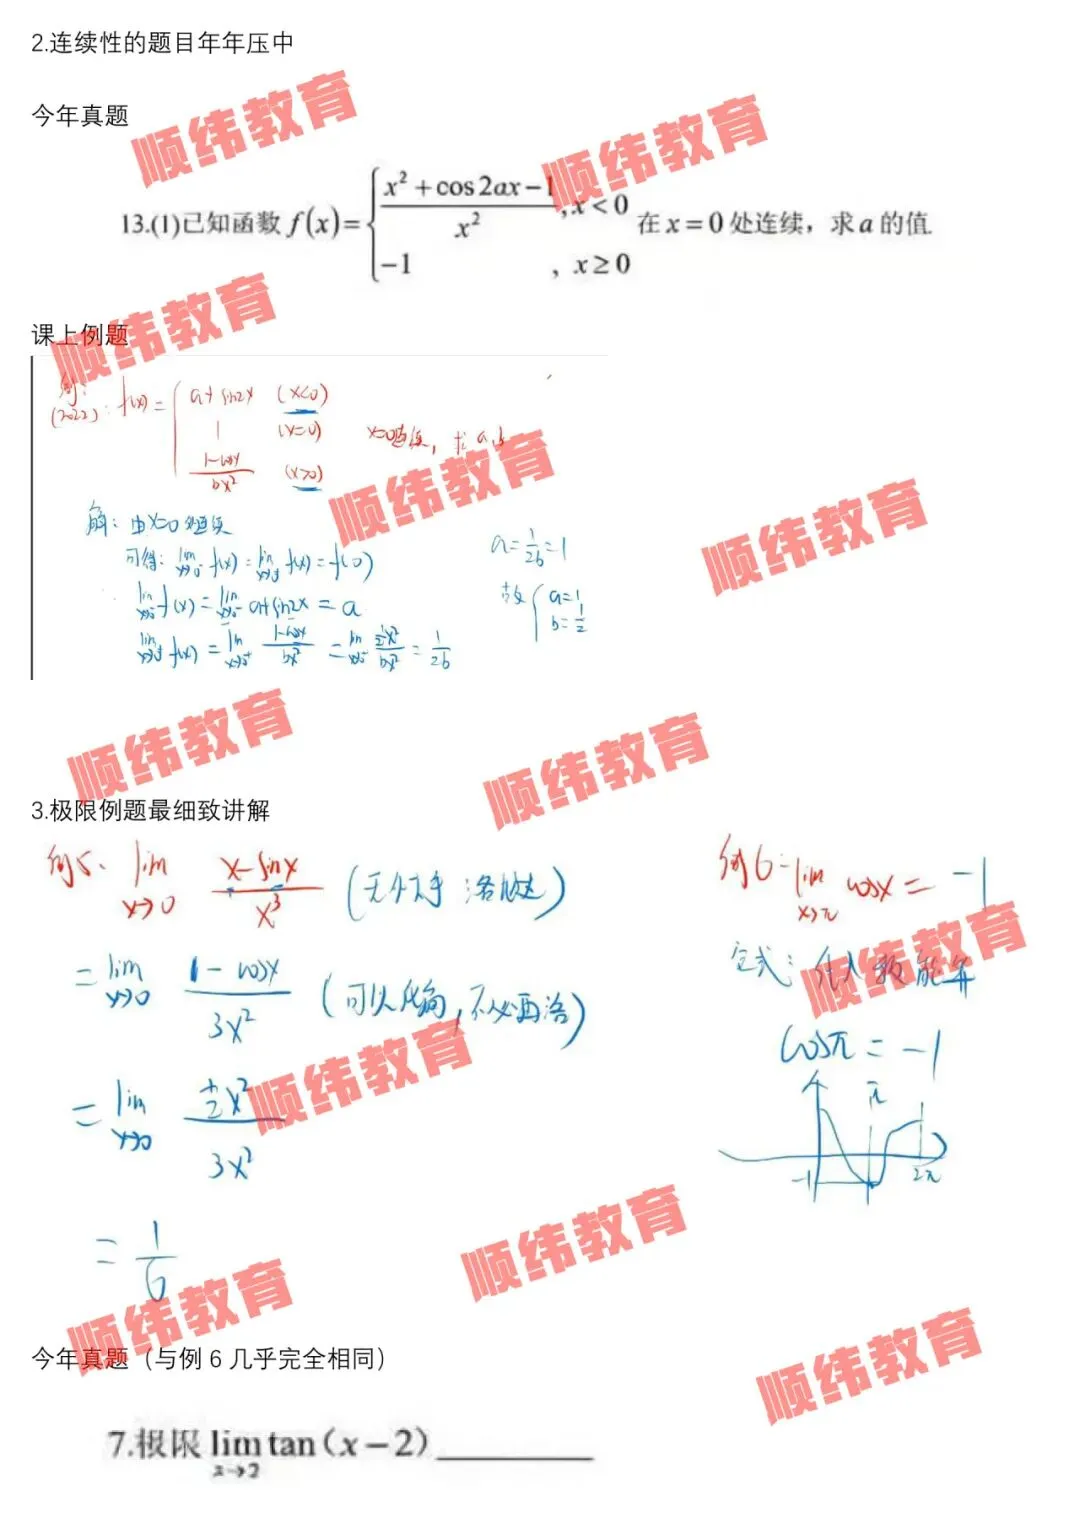 2.连续性的题目年年压中
今年真题
顺纬教育
顺纬教育
13.(1)已知函数 f(x)={ (x²+cos2ax-1)/x² , x<0
-1 , x≥0 在 x=0 处连续，求 a 的值.
课上例题
顺纬教育
例:
(2022): f(x)={ a+sin2x (x<0)
1 (x=0) x=0连续, 求 a,b
(1-cosx)/(bx²) (x>0)
顺纬教育
顺纬教育
解: 由 x=0 处连续
可得: lim x→0⁻ f(x)=lim x→0⁺ f(x)=f(0)
lim x→0⁻ f(x)=lim x→0⁻ a+sin2x=a
lim x→0⁺ f(x)=lim x→0⁺ (1-cosx)/(bx²)=lim x→0⁺ (½x²)/(bx²)=1/(2b)
a=1/(2b)=1
故{ a=1
b=1/2
顺纬教育
顺纬教育
3.极限例题最细致讲解
例5. lim x→0 (x-sinx)/x³ (无从下手 洛必达)
=lim x→0 (1-cosx)/(3x²) (可以代换,不必再洛)
=lim x→0 (½x²)/(3x²)
=1/6
例6: lim x→π cosx=-1
定式: 代入数能算
cosπ=-1
π
-1
2π
顺纬教育
顺纬教育
顺纬教育
顺纬教育
顺纬教育
今年真题（与例 6 几乎完全相同）
7.极限 lim x→2 tan(x-2)________